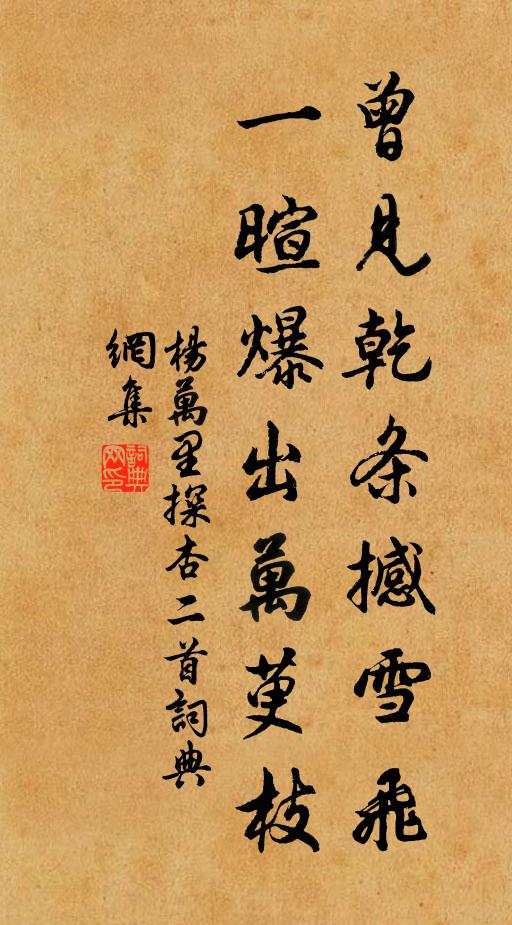 曾見乾条撼雪飛
一暄爆出萬萸枝
楊萬里探杏二首詞典
網集
詞典
网印